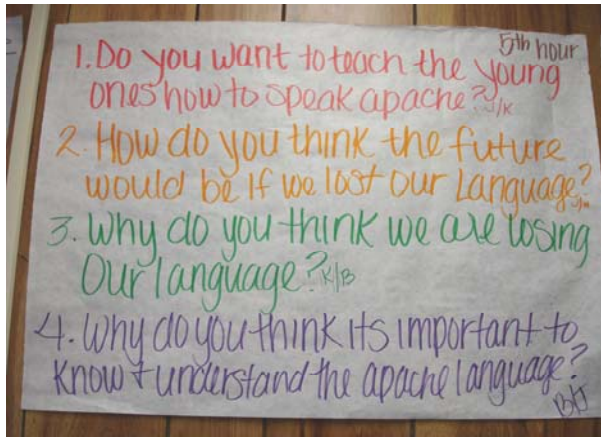 5th hour
1. Do you want to teach the young
ones how to speak apache? J/K
2. How do you think the future
would be if we lost our Language?
3. Why do you think we are losing
Our language? K/B
4. Why do you think its important to
know + understand the apache language?
B/J